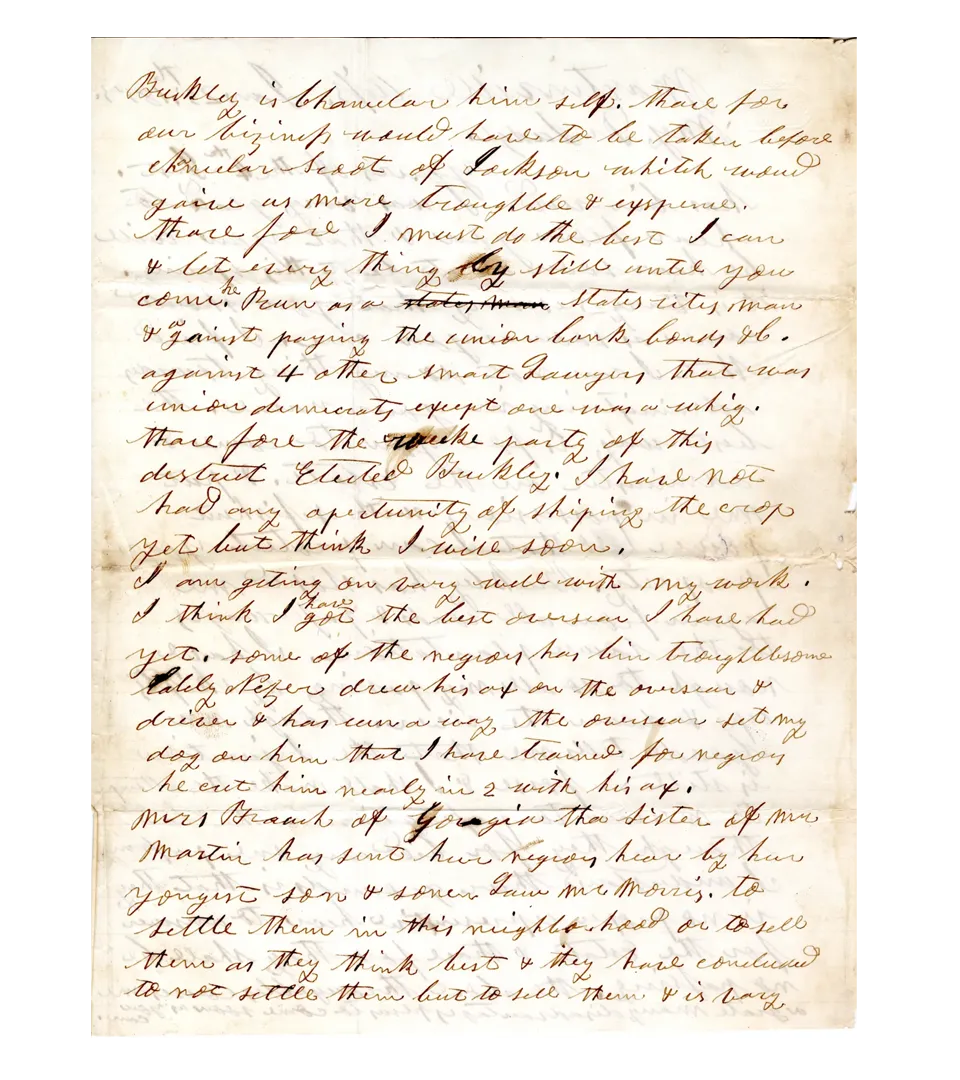 Buckley is Chancelar him self. thare for
our biziness would have to be taken before
chncelar Scoot of Jackson whitch would
gaive us more troughble & exspence.
thare fore I must do the best I can
& let every thing ly still until you
come. he Run as a states man states rites man
& against paying the union bank bonds &c.
against 4 other smart Lawyers that was
union demucrats except one was a whig.
thare fore the weeke party of this
destrict Elected Buckley. I have not
had any opertunity of shiping the crop
yet but think I will soon.
I am geting on vary well with my work.
I think I have got the best oversear I have had
yet. some of the negroes has bin troughblesome
lately Nezer drew his ax on the oversear &
driver & has run a way the oversear set my
dog on him that I have trained for negroes
he cut him nearly in 2 with his ax.
Mrs Branch of Gorgia tha Sister of Mr
Martin has sent hur negroes hear by hur
yongest son & sonen Law Mr Morris. to
settle them in this neighborhood or to sell
them as they think best & they have concluded
to not settle them but to sell them & is vary